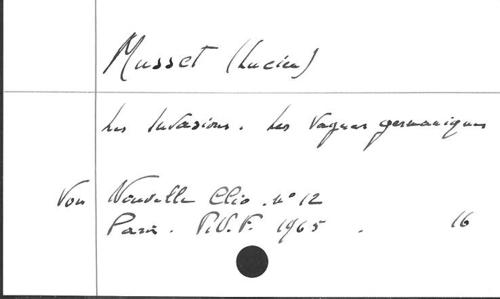 Musset (Lucien)
Les Invasions. Les Vagues germaniques
Voir Nouvelle Clio. n° 12
Paris. P.U.F. 1965. 16